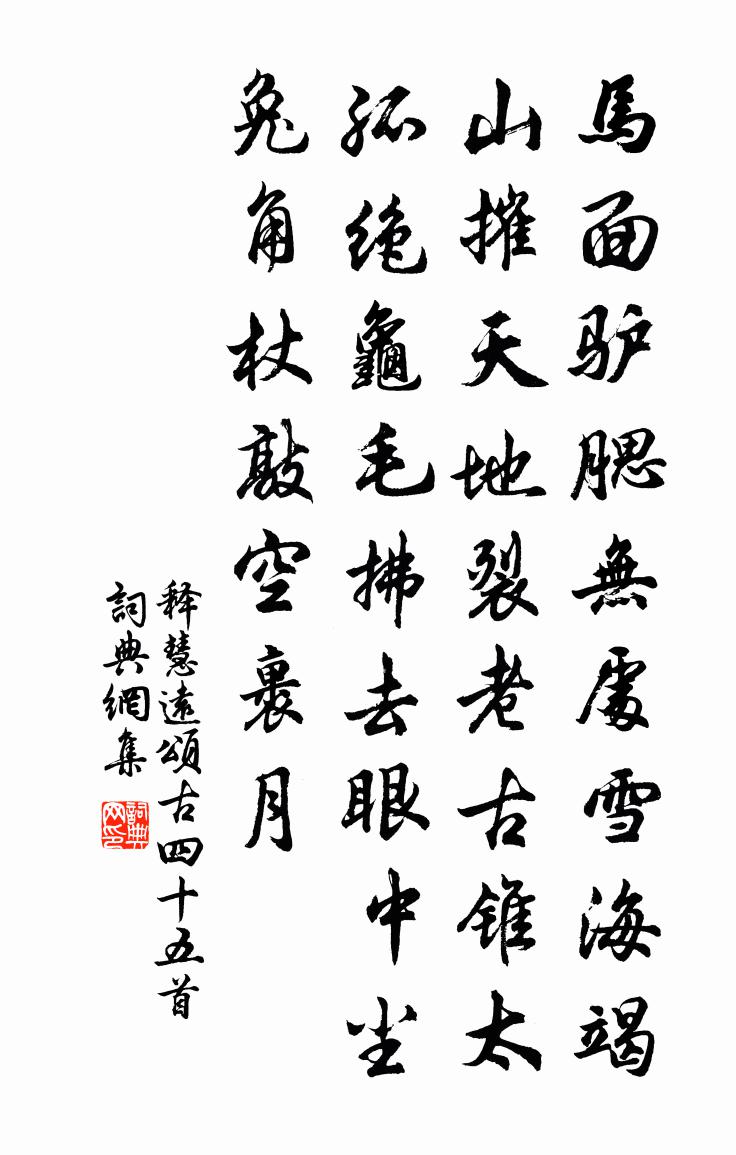 馬面驴腮無處雪海竭
山摧天地裂老古锥太
孤绝龜毛拂去眼中尘
兔角杖敲空裹月
释慧遠頌古四十五首
詞典網集
詞典网印